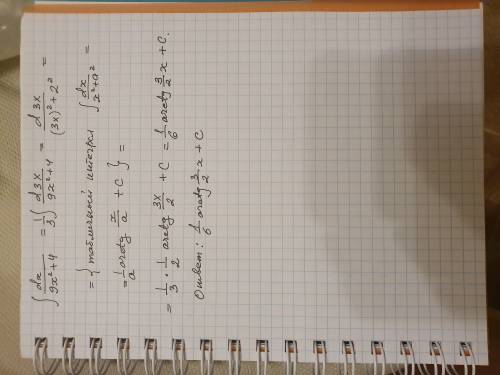 ∫ dx/(9x²+4) = 1/3 ∫ d3x/(9x²+4) = d3x/((3x)²+2²) =
= { табличный интеграл ∫ dx/(x²+a²) =
= 1/a arctg x/a + C } =
= 1/3 · 1/2 arctg 3x/2 + C = 1/6 arctg 3/2 x + C.
Ответ: 1/6 arctg 3/2 x + C